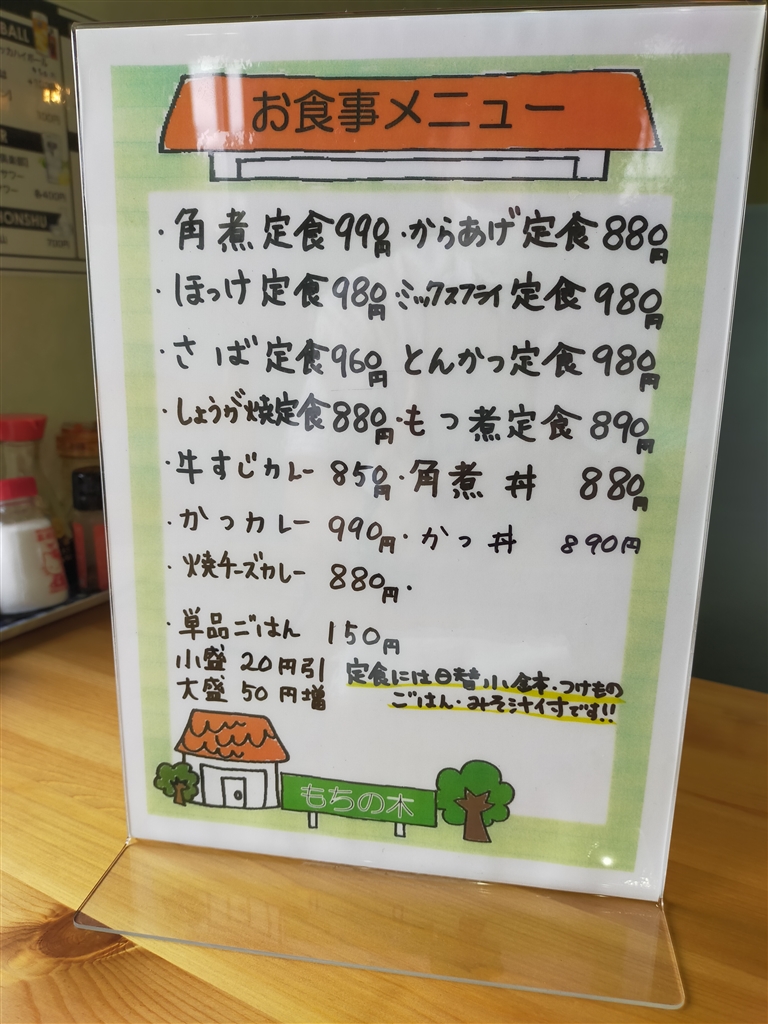 BALL
700円
HONSHU
700円
お食事メニュー
・角煮定食990円・からあげ定食880円
・ほっけ定食980円 ミックスフライ定食980円
・さば定食960円 とんかつ定食980円
・しょうが焼定食880円・もつ煮定食890円
・牛すじカレー 850円・角煮丼 880円
・かつカレー 990円・かつ丼 890円
・焼チーズカレー 880円・
・単品ごはん 150円
小盛 20円引
大盛 50円増
定食には日替小鉢・つけもの
ごはん・みそ汁付です!!
もちの木